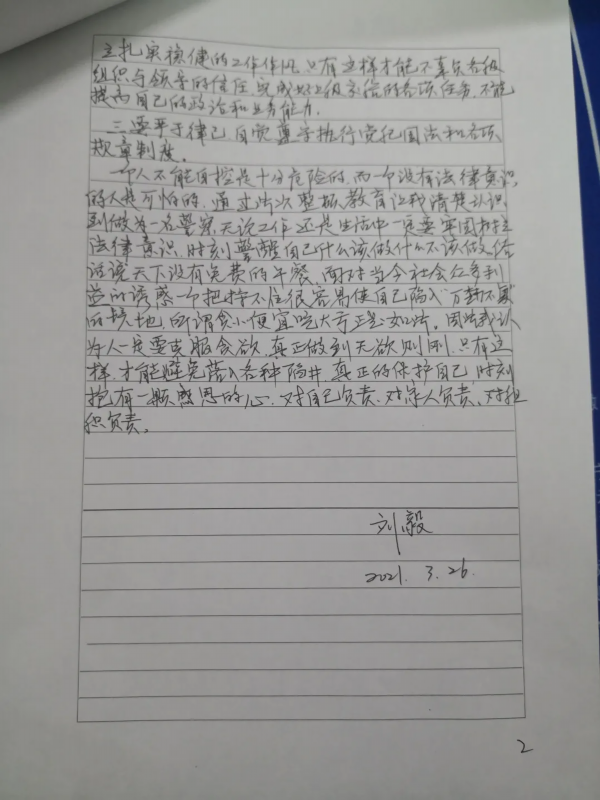 立扎实稳健的工作作风。只有这样才能不辜负各级
组织与领导的信任,完成好上级交给的各项任务,不能
提高自己的政治和业务能力.
三.要严于律己,自觉遵守执行党纪国法和各项
规章制度。
一个人不能自控是十分危险的,而一个没有法律意识
的人是可怕的,通过此次整顿教育让我清楚认识
到做为一名警察,无论工作还是生活中一定要牢固树立
法律意识,时刻警醒自己什么该做什么不该做,俗
话说天下没有免费的午餐、面对当今社会红多利
益的诱惑一个把持不住很容易使自己陷入"万劫不复"
的境地,所谓贪小便宜吃大亏正是如此。因此我认
为人一定要克服贪欲,真正做到无欲则刚.只有这
样,才能避免落入各种陷井,真正的保护自己,时刻
抱有一颗感恩的心,对自己负责、对家人负责、对组
织负责。
刘毅
2021. 3. 26.
2